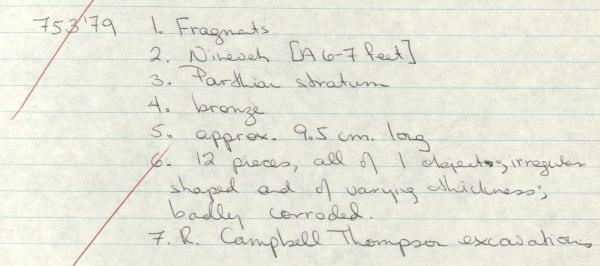 753'79 1. Fragments
2. Nineveh [A 6-7 feet]
3. Parthian stratum
4. bronze
5. approx. 9.5 cm. long
6. 12 pieces, all of 1 object; irregular
shaped and of varying thickness;
badly corroded.
7. R. Campbell Thompson excavations